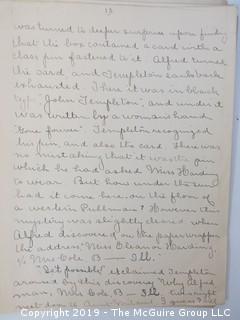 13
was turned to deeper surprise upon finding
that the box contained a card with a
class pin fastened to it. Alfred turned
the card and Templeton sank back
exhausted. There it was in black
type, "John Templeton", and under it
was written by a woman's hand
"Gone forever". Templeton recognized
his pin, and also the card. There was
no mistaking that it was the pin
which he had asked Miss Harding
to wear. But how under the sun
had it come here, on the floor of
a western Pullman? However this
mystery was slightly cleared when
Alfred discovered on the paper wrapper
the address, "Miss Eleanor Harding,
c/o Miss Cole, B— Ill."
"Is it possible" exclaimed Templeton
around by this discovery. "Why Alfred
man, Miss Cole, B— Ill.
Copyright 2019 - OldGoatBooks.com